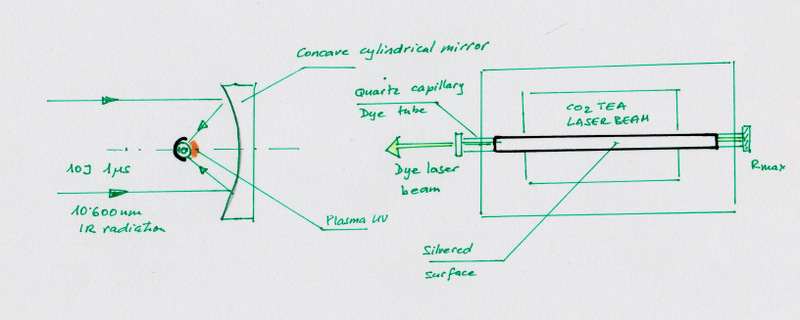 Concave cylindrical mirror
10J 1µs
10·600nm
IR radiation
Plasma UV
Quartz capillary
Dye tube
CO2 TEA
LASER BEAM
Dye laser
beam
Rmax
Silvered
surface